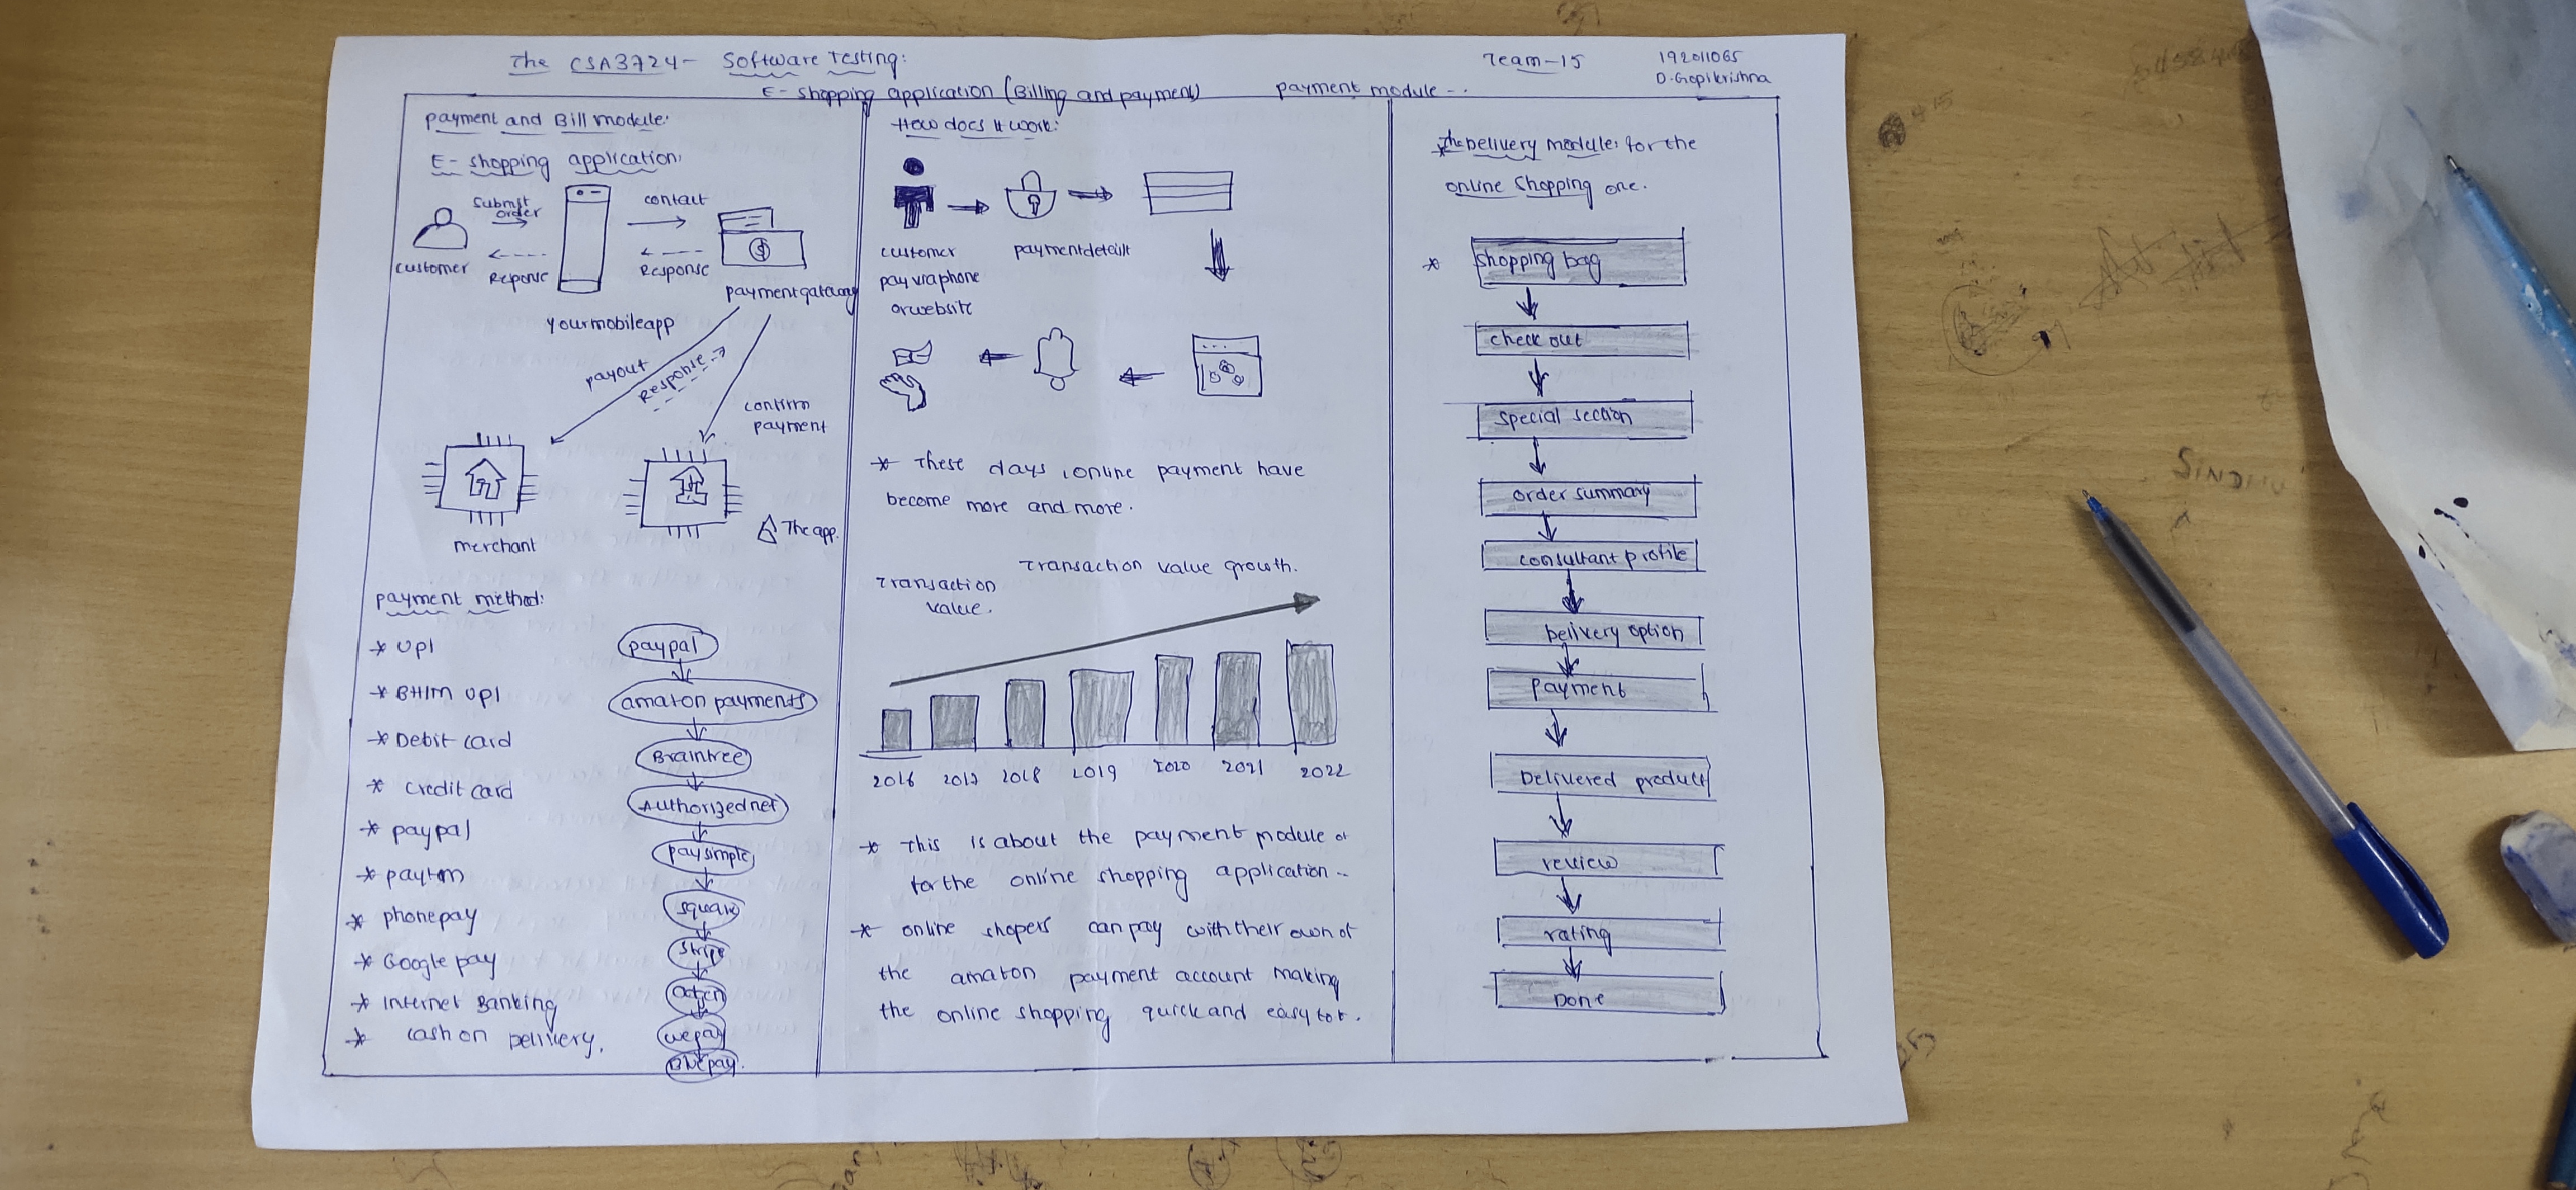 The CSA3724- Software Testing:
Team-15
192011065
D.Gopikrishna
E-shopping application (Billing and payment)
payment module-..
payment and Bill module:
E-shopping application:
customer
submit
order
Reponse
yourmobileapp
contact
Response
paymentgateway
payout
Response
confirm
payment
merchant
The app.
payment method:
* UPI
* BHIM UPI
* Debit card
* credit card
* paypal
* paytm
* phonepay
* Google pay
* Internet Banking
* cash on Delivery.
paypal
amazon payments
Braintree
Authorized net
paysimple
square
stripe
wepay
-How does it work:
customer
pay via phone
or website
paymentdetails
* These days ionline payment have
become more and more.
Transaction
value.
Transaction value growth.
2016 2017 2018 2019 2020 2021 2022
* This is about the payment module of
for the online shopping application..
* online shopers can pay with their own of
the amazon payment account making
the online shopping quick and easy for.
*The Delivery module: for the
online shopping one.
*
shopping bag
check out
special section
order summary
consultant profile
Delivery option
payment
Delivered product
review
rating
Done
SINDHU